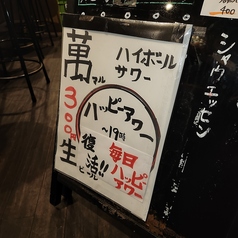 萬
マル
ハイボール
サワー
300円
生
ビール
ハッピーアワー
～19時
復活!!
毎日
ハッピー
アワー
シャウエッセン
400